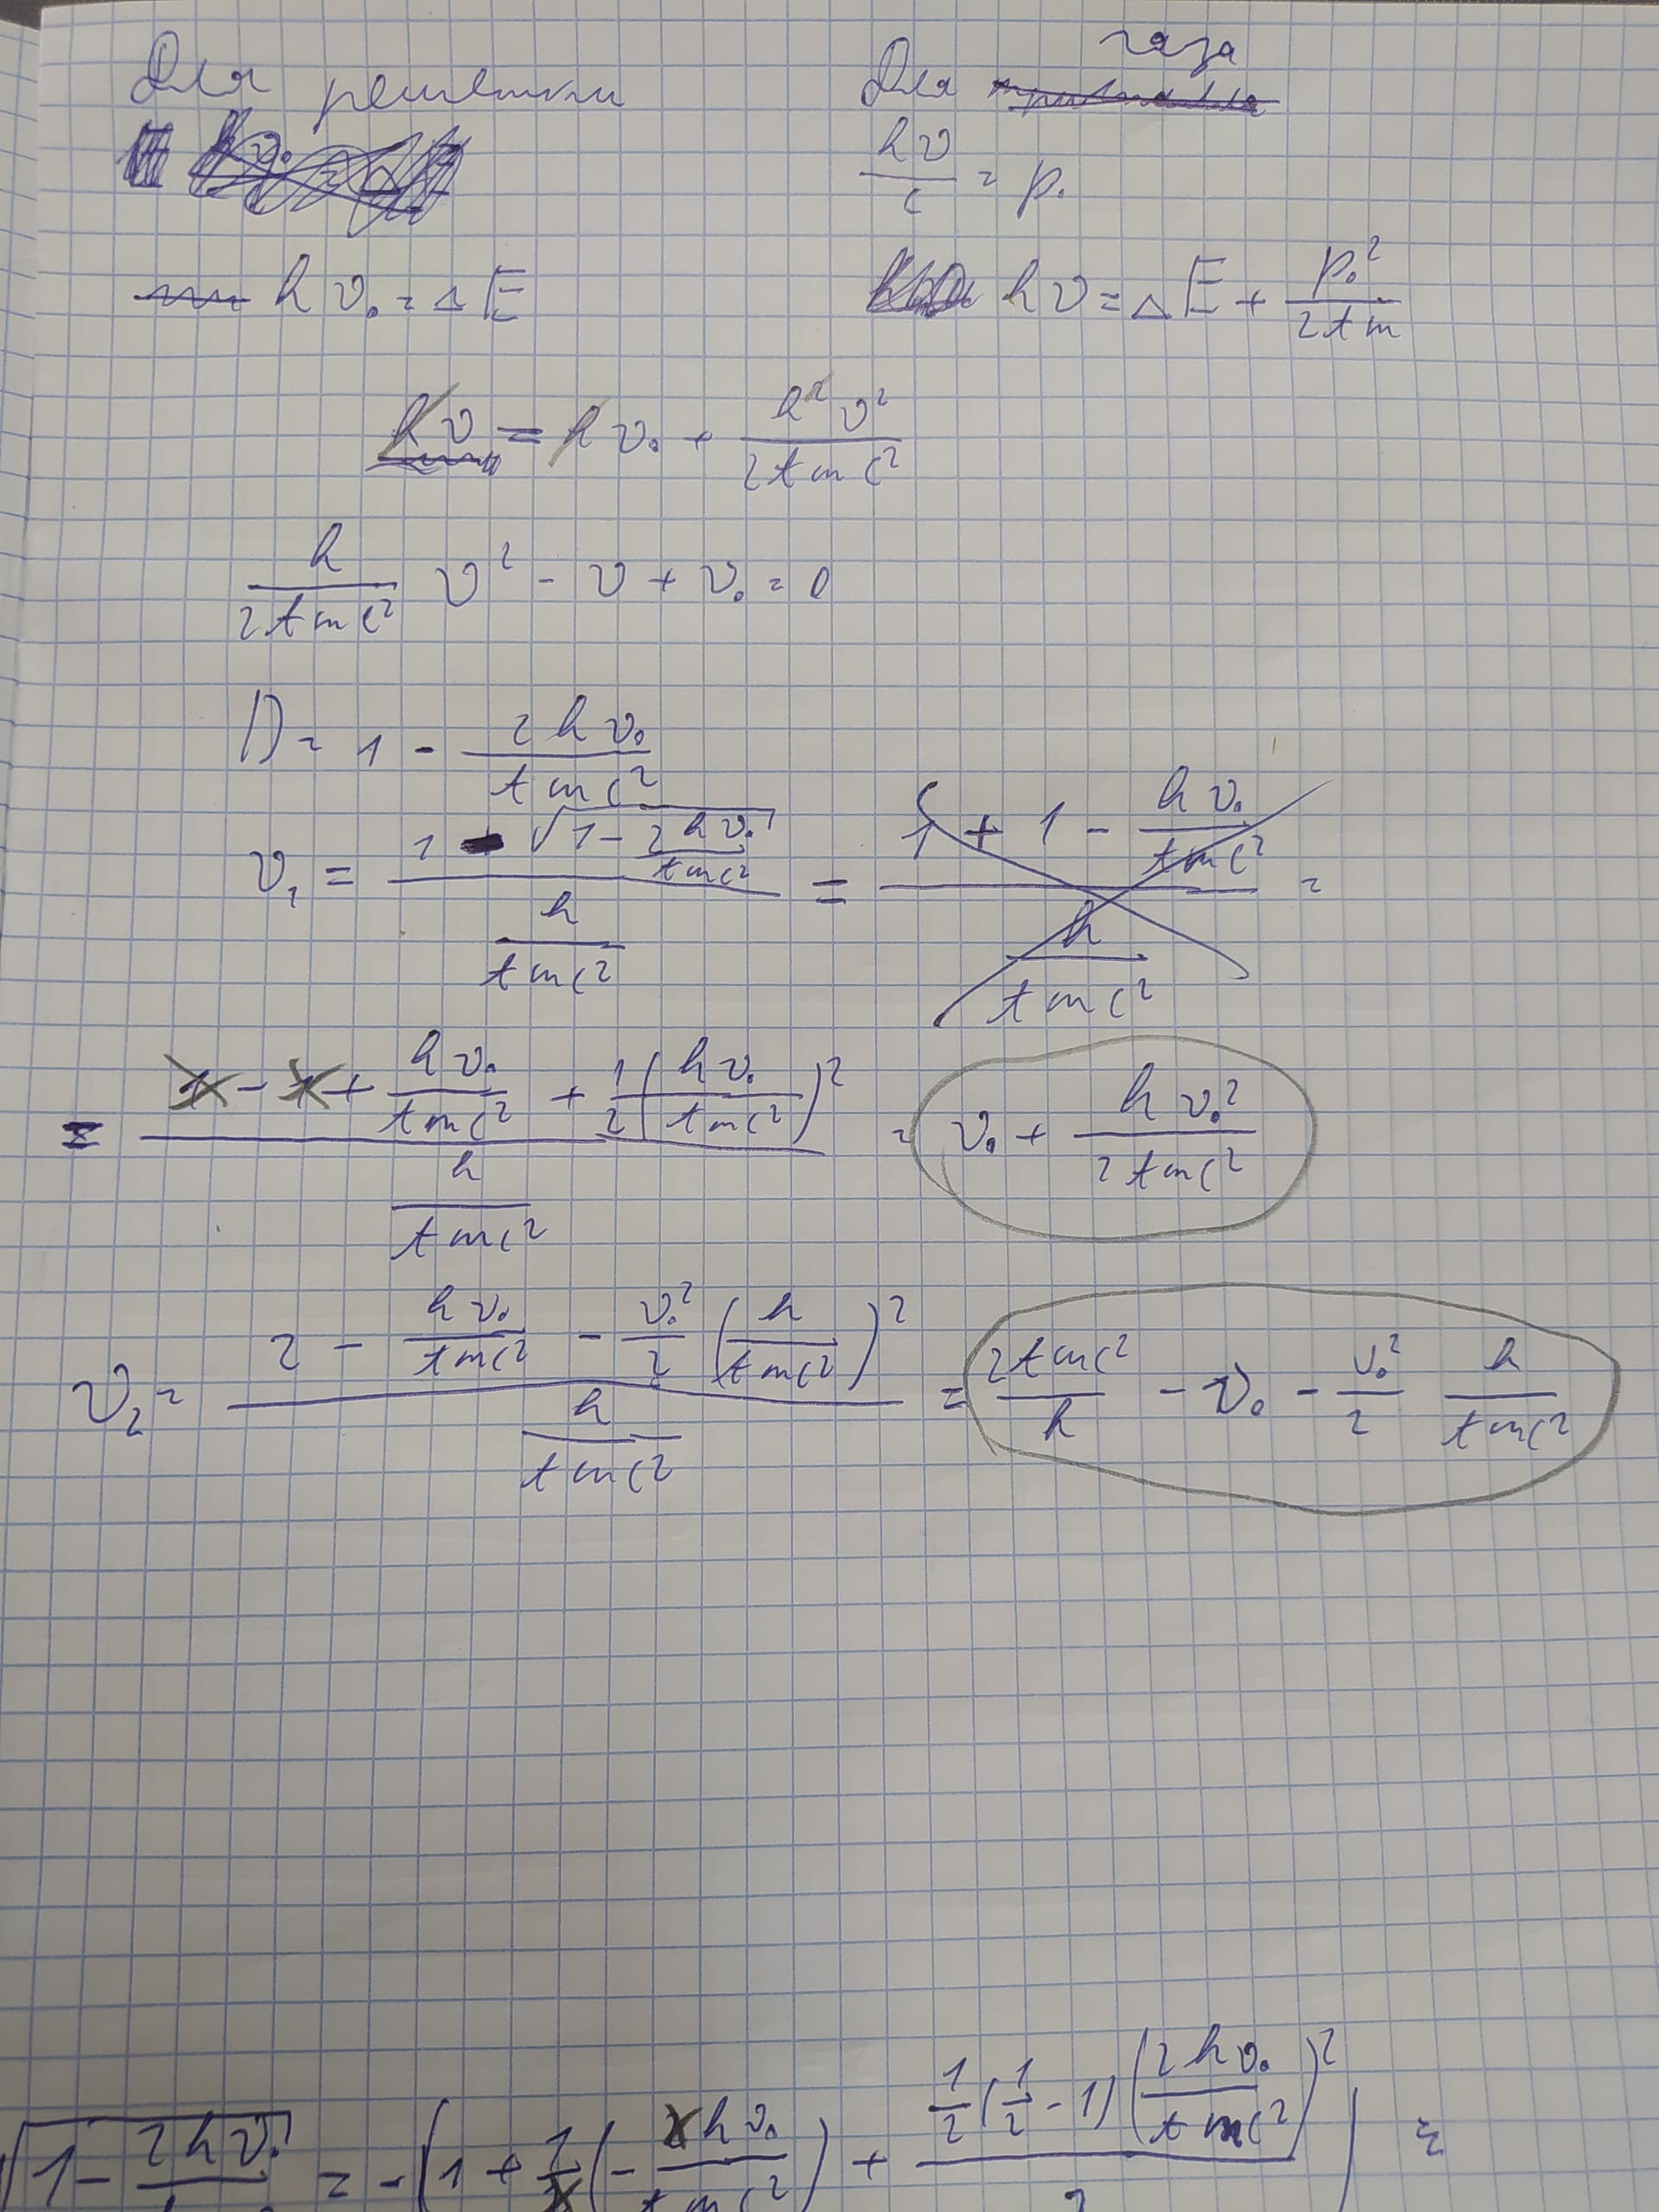 Для решетки
Для газа
hν/c = p₀
hν₀ = ΔE
hν = ΔE + p₀²/2tm
hν = hν₀ + h²ν²/2tmc²
h/2tmc² ν² - ν + ν₀ = 0
D = 1 - 2hν₀/tmc²
ν₁ = (1 - √(1 - 2hν₀/tmc²))/(h/tmc²) = (1 + 1 - hν₀/tmc²)/(h/tmc²) =
= (1 - 1 + hν₀/tmc² + 1/2(hν₀/tmc²)²)/(h/tmc²) = ν₀ + hν₀²/2tmc²
ν₂ = (2 - hν₀/tmc² - ν₀²/2 (h/tmc²)²)/(h/tmc²) = 2tmc²/h - ν₀ - ν₀²/2 h/tmc²
√(1 - 2hν₀/ = -(1 + 1/2(-2hν₀/tmc²) + 1/2(1/2 - 1)(2hν₀/tmc²)²/2) =